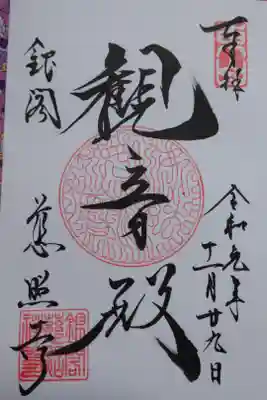 奉拝
令和元年
十一月廿九日
観音殿
銀閣
慈照寺